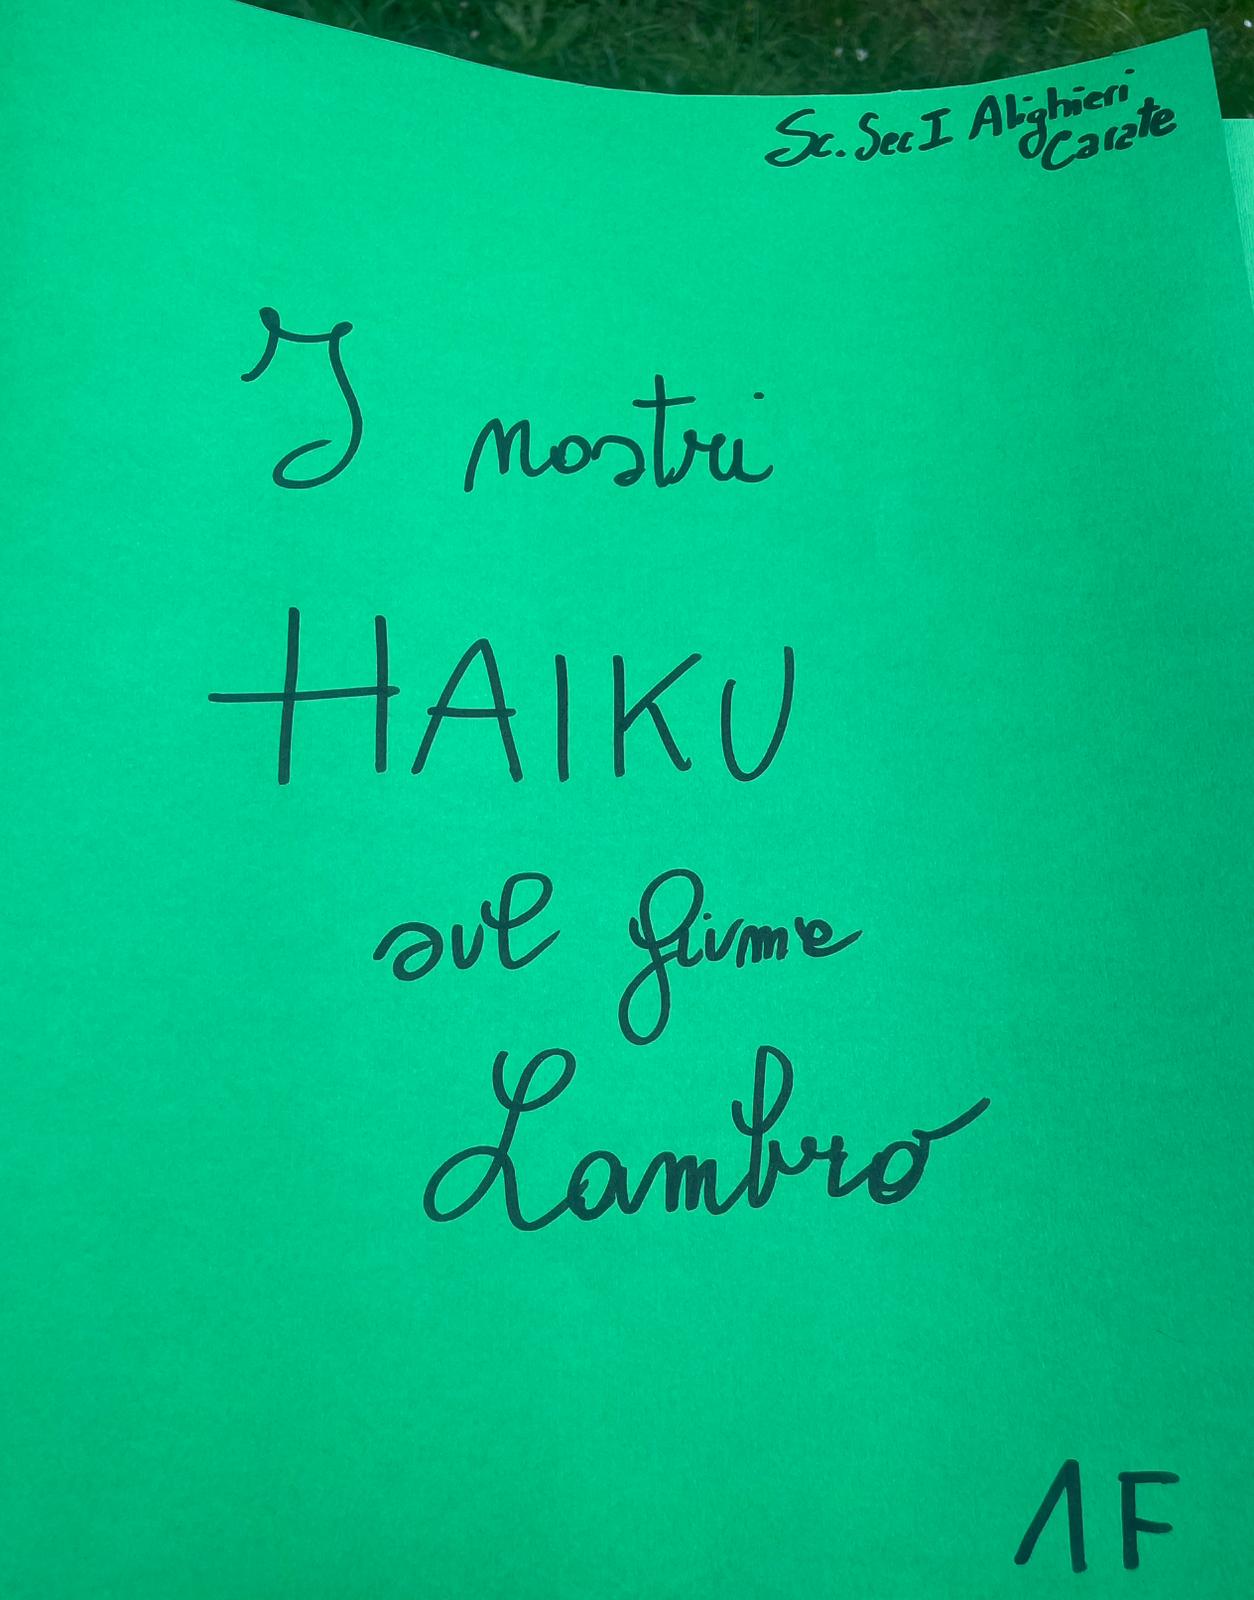 Sc. Sec I Alighieri
Carate
I nostri
HAIKU
sul fiume
Lambro
1F